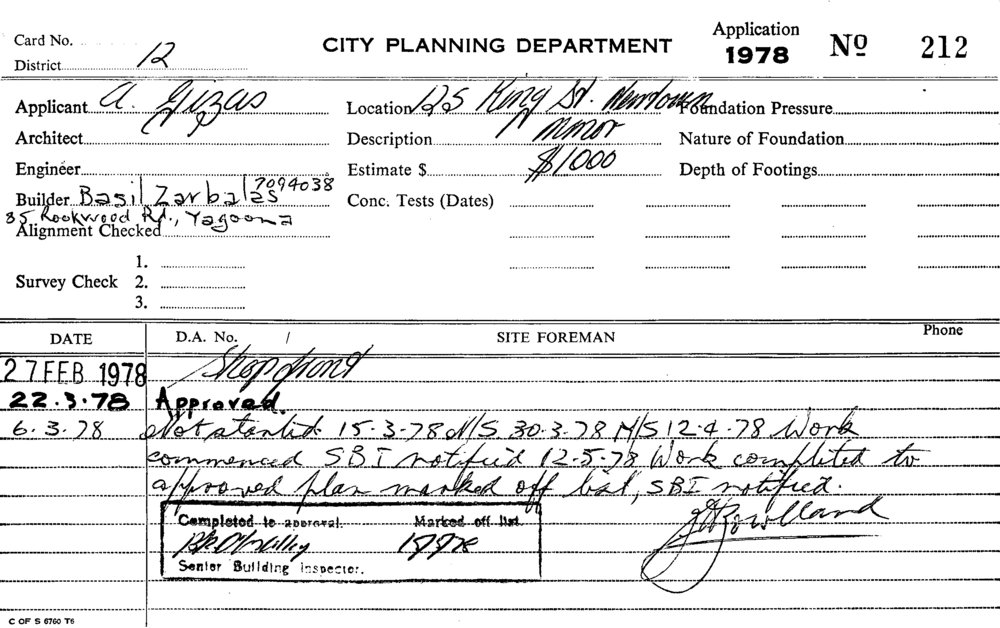 Card No.
District 12
CITY PLANNING DEPARTMENT
Application
1978
No 212
Applicant A. Gizas
Architect
Engineer
Builder Basil Zarbalas 7094038
85 Rookwood Rd., Yagoona
Alignment Checked
Survey Check
1.
2.
3.
Location 125 King St. Newtown
Description Minor
Estimate $ $1000
Conc. Tests (Dates)
Foundation Pressure
Nature of Foundation
Depth of Footings
DATE
D.A. No. /
SITE FOREMAN
Phone
27 FEB 1978 Shop front
22.3.78 Approved.
6.3.78 Not started. 15-3-78 N/S 30.3.78 N/S 12.4.78 Work
commenced SBI notified 12-5-78 Work completed to
approved plan marked off list, SBI notified.
Completed to approval. Marked off list.
Senior Building Inspector.
C OF S 6760 T6